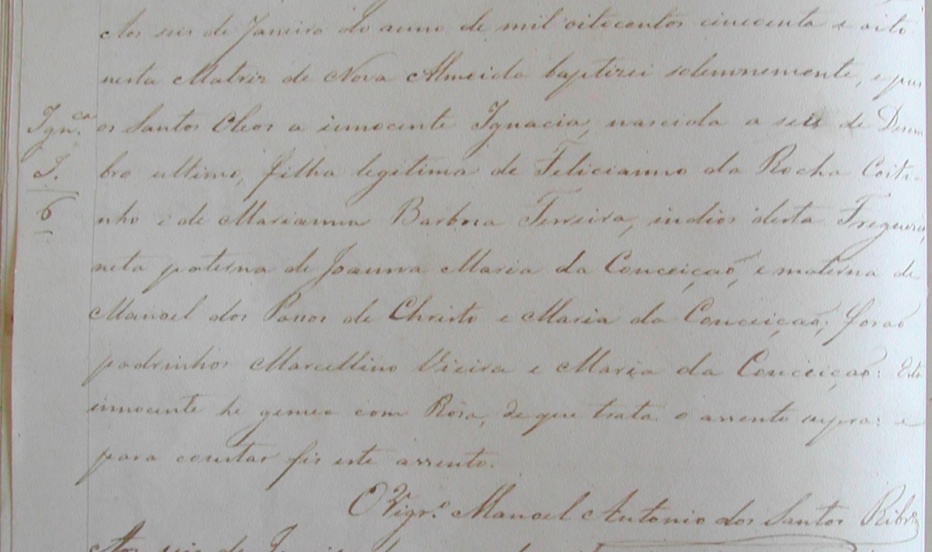 Aos seis de Janeiro do anno de mil oiticentos cincoenta e oito
nesta Matriz de Nova Almeida baptizei solemnemente, e pus
Ign.ca os Santos Oleos a innocente Ignacia, nascida a seis de Desem
I. bro ultimo, filha legitima de Felicianno da Rocha Coiti-
6 nho e de Marianna Barbosa Ferreira, indios desta Freguesia,
neta paterna de Joanna Maria da Conceição, e materna de
Manoel dos Passos de Christo e Maria da Conceição; forão
padrinhos Marcellino Vieira e Maria da Conceição: Esta
innocente he gemea com Rosa, de que trata o assento supra: e
para constar fis este assento.
O Vigr.o Manoel Antonio dos Santos Ribr.o
Aos seis de